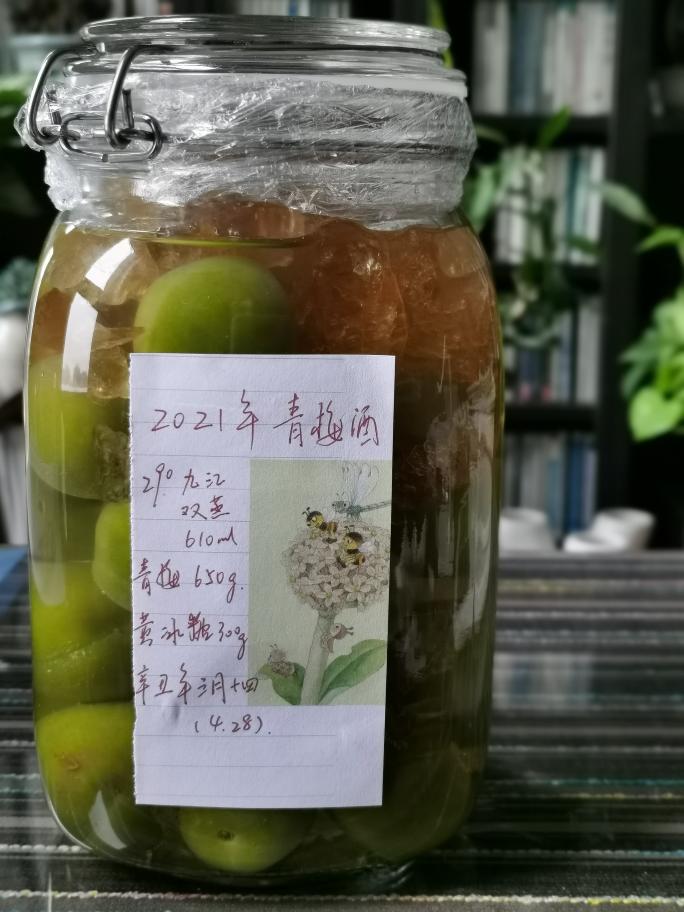 2021年 青梅酒
29° 九江
双蒸
610ml
青梅 650g.
黄冰糖300g
辛丑年三月十四
(4.28).